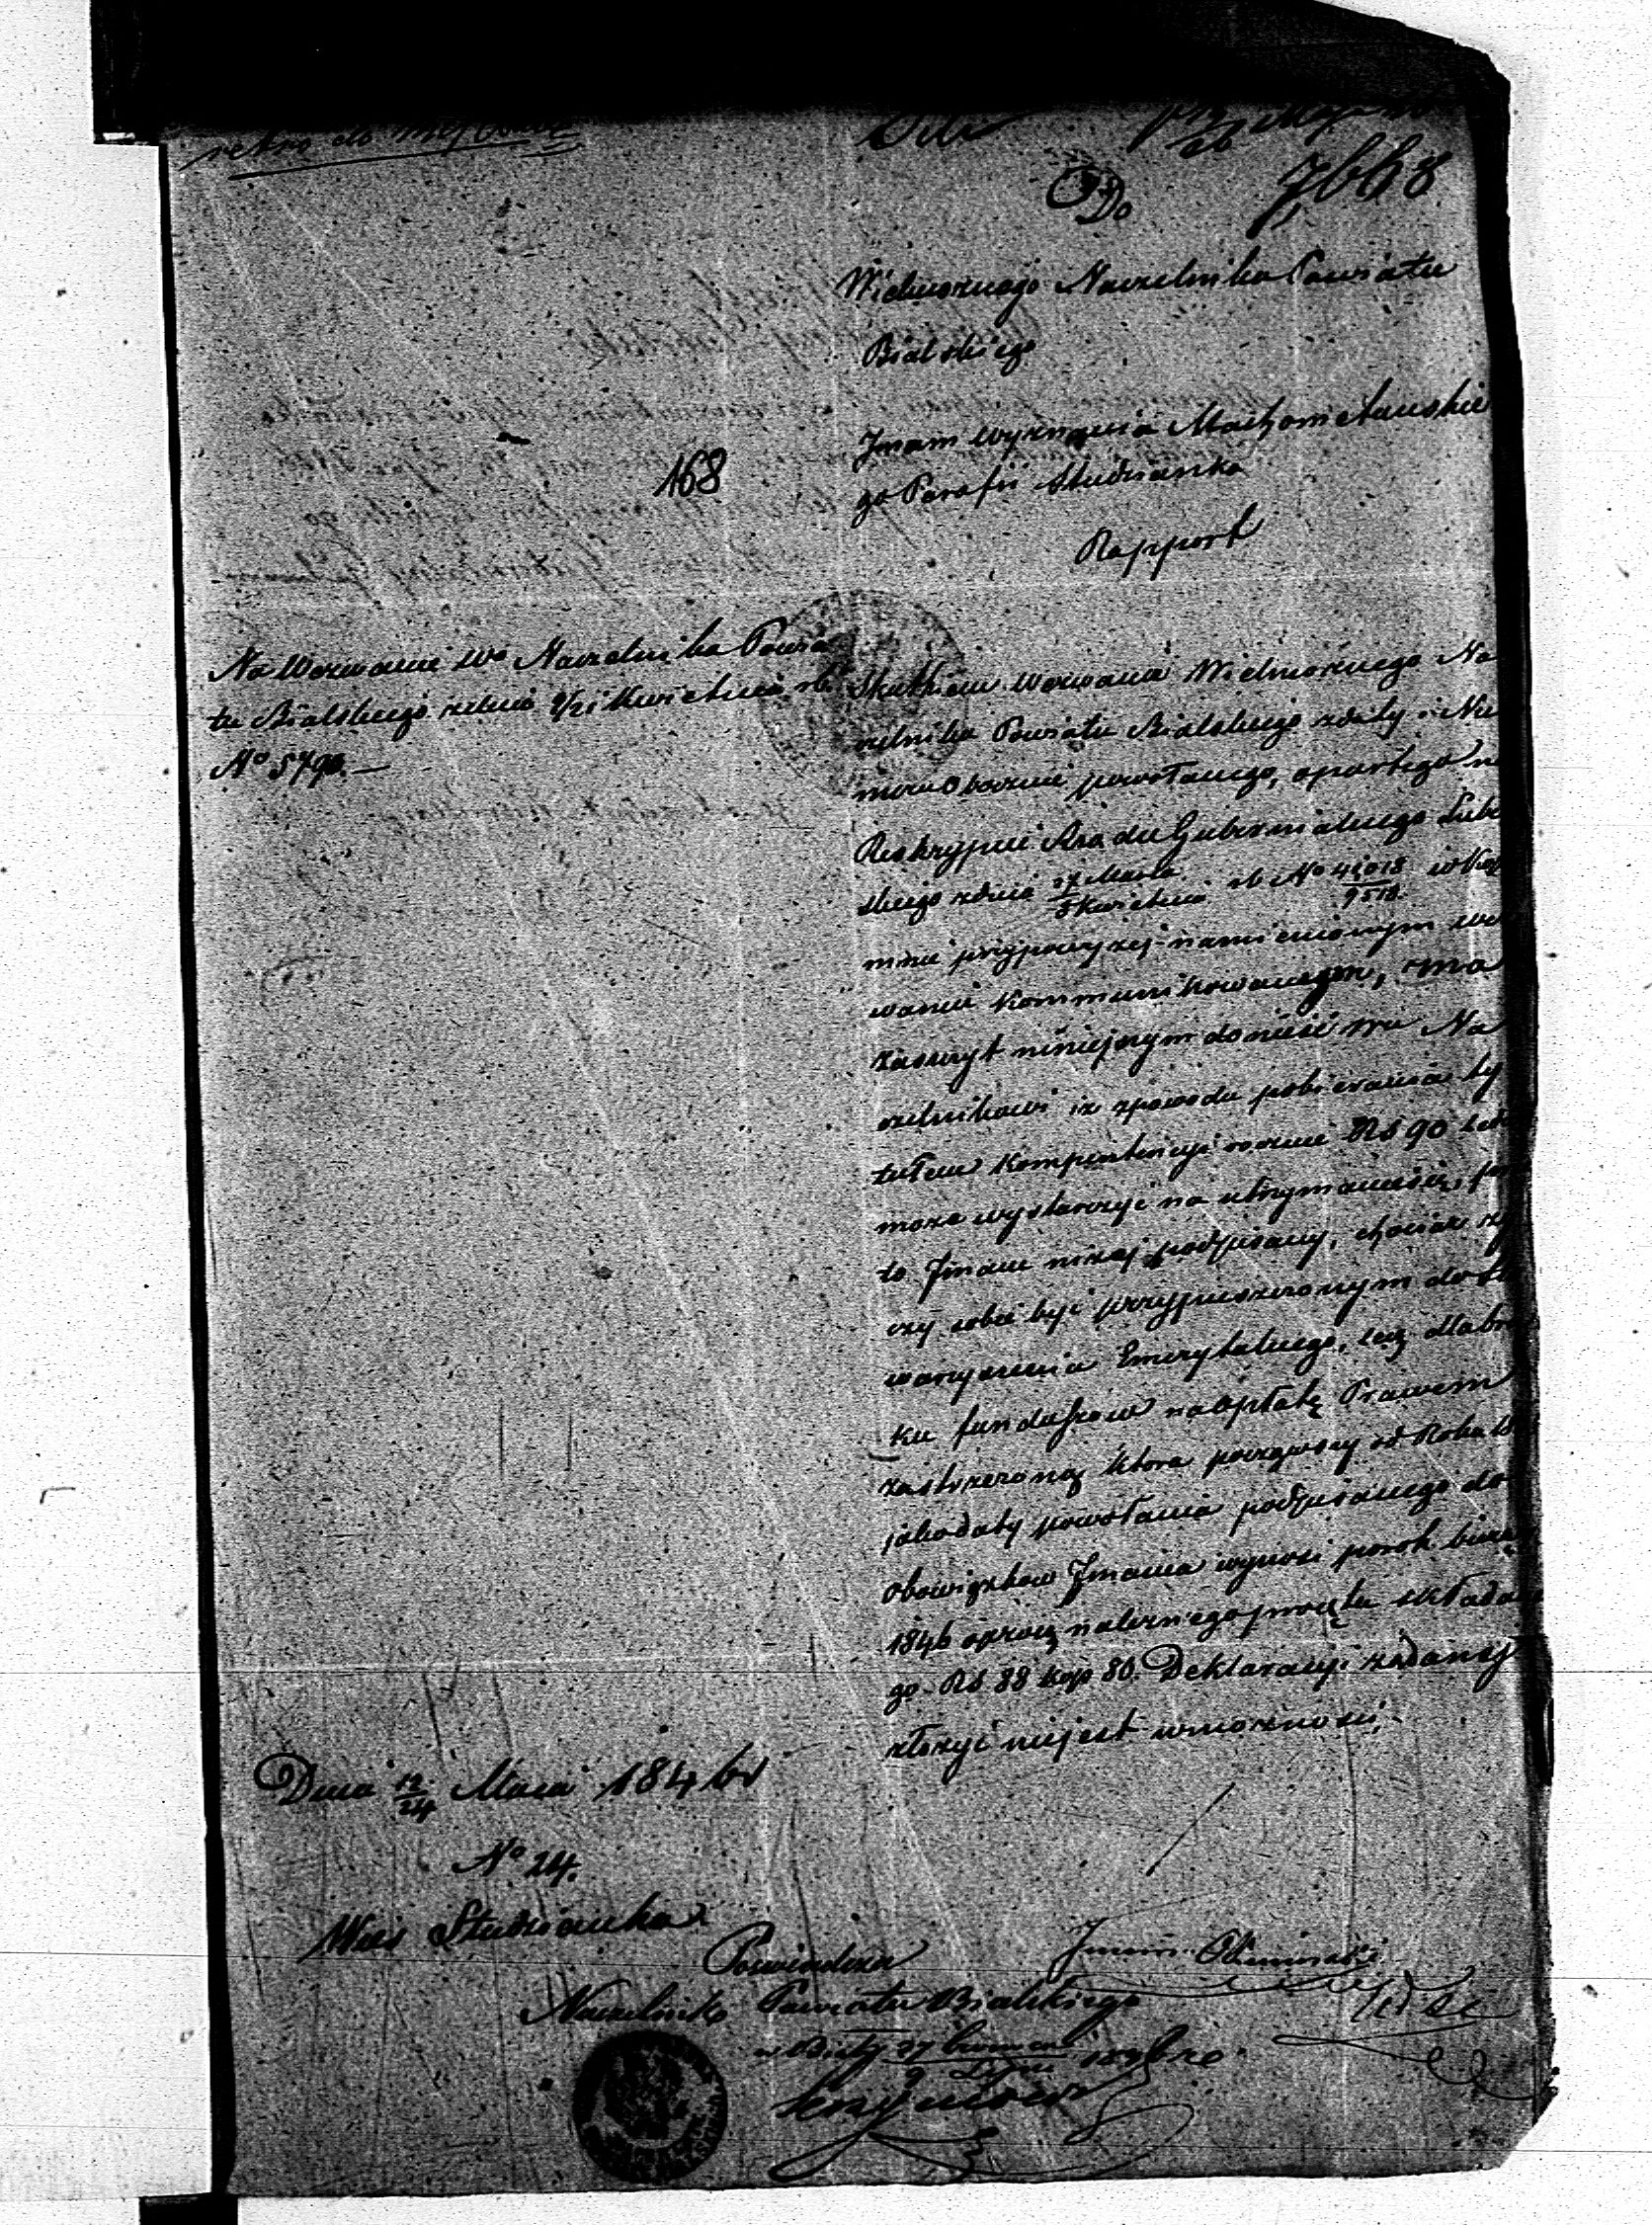 retro do
7668
Do
Wielmożnego Naczelnika Powiatu
Bialskiego
Imam wyznania Machometanskie
go Parafii Studzianka
168
Rapport
Na Wezwanie Wo Naczelnika Powia
tu Bialskiego zdnia 9/21 Kwietnia rb.
No 5790. —
Skutkiem wezwania Wielmożnego Na
czelnika Powiatu Bialskiego zdaty i Nu
meru obocznie powołanego, opartego na
Reskrypcie Rządu Gubernialnego Lubel
skiego zdnia 27 Marca/8 Kwietnia rb No 42018/9518 w
minie przy powyżej namienionym we
waniu kommunikowanym, ma
zaszczyt niniejszym donieść Wu Na
czelnikowi iż zpowodu pobierania ty
tułem kompentencyi rocznie RS 90
może wystarczyć na utrzymanie się,
to Imam niżej podpisany, chociaż ży
czy sobie być przypuszczonym do
warzyszenia Emerytalnego, lecz dla bra
ku funduszów na opłatę Prawem
zastrzeżoną która począwszy od Roku
jako daty powołania podpisanego do
obowiązków Imama wynosi po rok bieżą
1846 oprócz należnego procętu składa
go RS 88 kop 80. Deklaracyi żądanej
złożyć niejest wmożności,
Dnia 12/24 Maia 1846 r
No 24.
Wieś Studzianka
Imam
Poświadcza
Naczelnik Powiatu Bialskiego
w Biały 27 /9 Lipca 1846 ro.